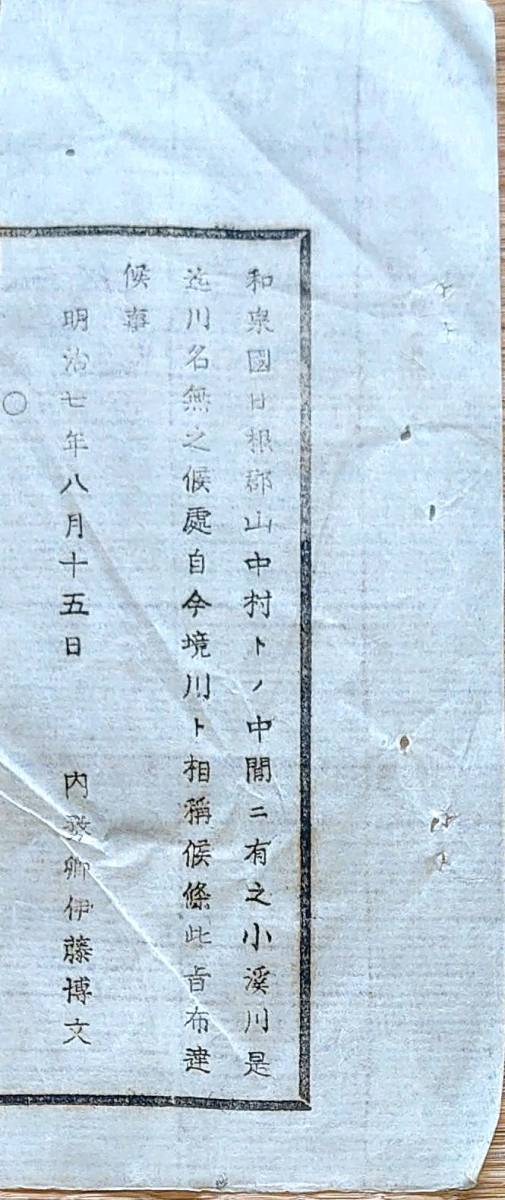 和泉國日根郡山中村トノ中間ニ有之小溪川是
迄川名無之候處自今境川ト相稱候條此旨布達
候事
明治七年八月十五日 内務卿伊藤博文
○